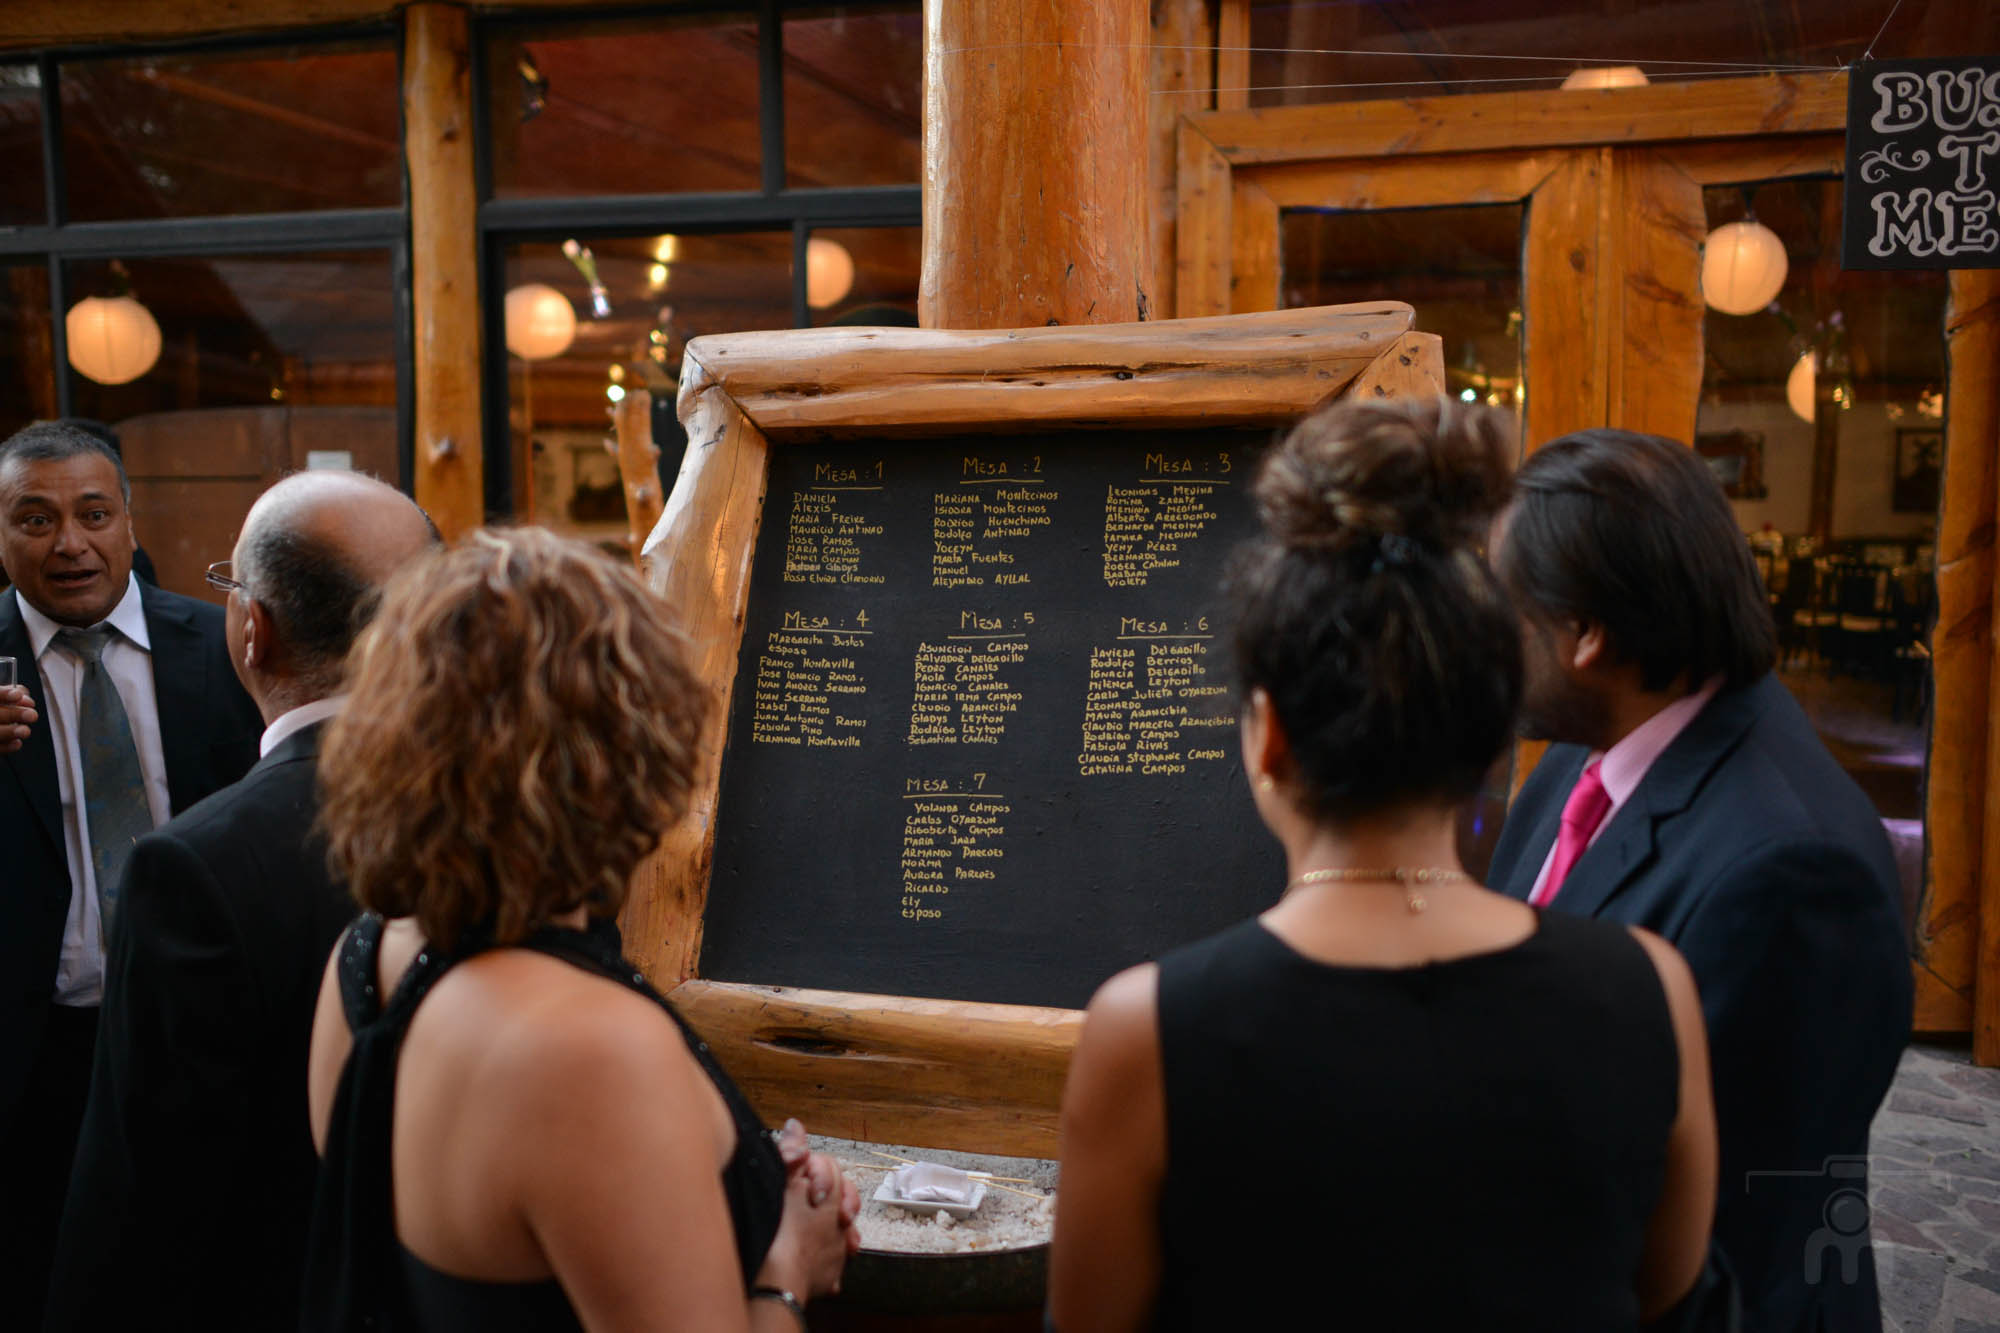 MESA : 1
DANIELA
ALEXIS
MARÍA FREIRE
MAURICIO ANTINAO
JOSE RAMOS
MARÍA CAMPOS
DANIEL GUZMAN
GLADYS
ROSA ELVIRA CHAMORRO
MESA : 2
MARIANA MONTECINOS
ISIDORA MONTECINOS
RODRIGO HUENCHINAO
RODOLFO ANTINAO
YOCEYN
MARTA FUENTES
MANUEL
ALEJANDRO AYLLAL
MESA : 3
LEONIDAS MEDINA
ROMINA ZARATE
HERMINIA MEDINA
ALBERTO ARREDONDO
BERNARDA MEDINA
TAMARA MEDINA
YENY PÉREZ
BERNARDO
ROGER CATALAN
BARBARA
VIOLETA
MESA : 4
MARGARITA BUSTOS
ESPOSO
FRANCO HONTAVILLA
JOSE IGNACIO RAMOS
IVAN ANDRES SERRANO
IVAN SERRANO
ISABEL RAMOS
JUAN ANTONIO RAMOS
FABIOLA PINO
FERNANDA HONTAVILLA
MESA : 5
ASUNCION CAMPOS
SALVADOR DELGADILLO
PEDRO CANALES
PAOLA CAMPOS
IGNACIO CANALES
MARIA IRMA CAMPOS
CLAUDIO ARANCIBIA
GLADYS LEYTON
RODRIGO LEYTON
SEBASTIAN CANALES
MESA : 6
JAVIERA DELGADILLO
RODOLFO BERRIOS
IGNACIA DELGADILLO
MILENCA LEYTON
CARLA JULIETA OYARZUN
LEONARDO
MAURO ARANCIBIA
CLAUDIO MARCELO ARANCIBIA
RODRIGO CAMPOS
FABIOLA RIVAS
CLAUDIA STEPHANIE CAMPOS
CATALINA CAMPOS
MESA : 7
YOLANDA CAMPOS
CARLOS OYARZUN
RIGOBERTO CAMPOS
MARIA JARA
ARMANDO PAREDES
NORMA
AURORA PAREDES
RICARDO
ELY
ESPOSO
BUS
T
ME